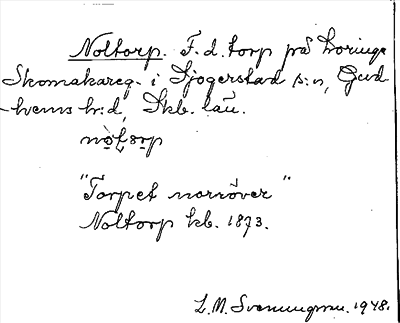 Noltorp. F. d. torp på Loringa
Skomakareg. i Sjogerstad s:n, Gud-
hems h:d, Skb. län.
"Torpet norröver"
Noltorp kb. 1873.
L. M. Svenungsson. 1948.